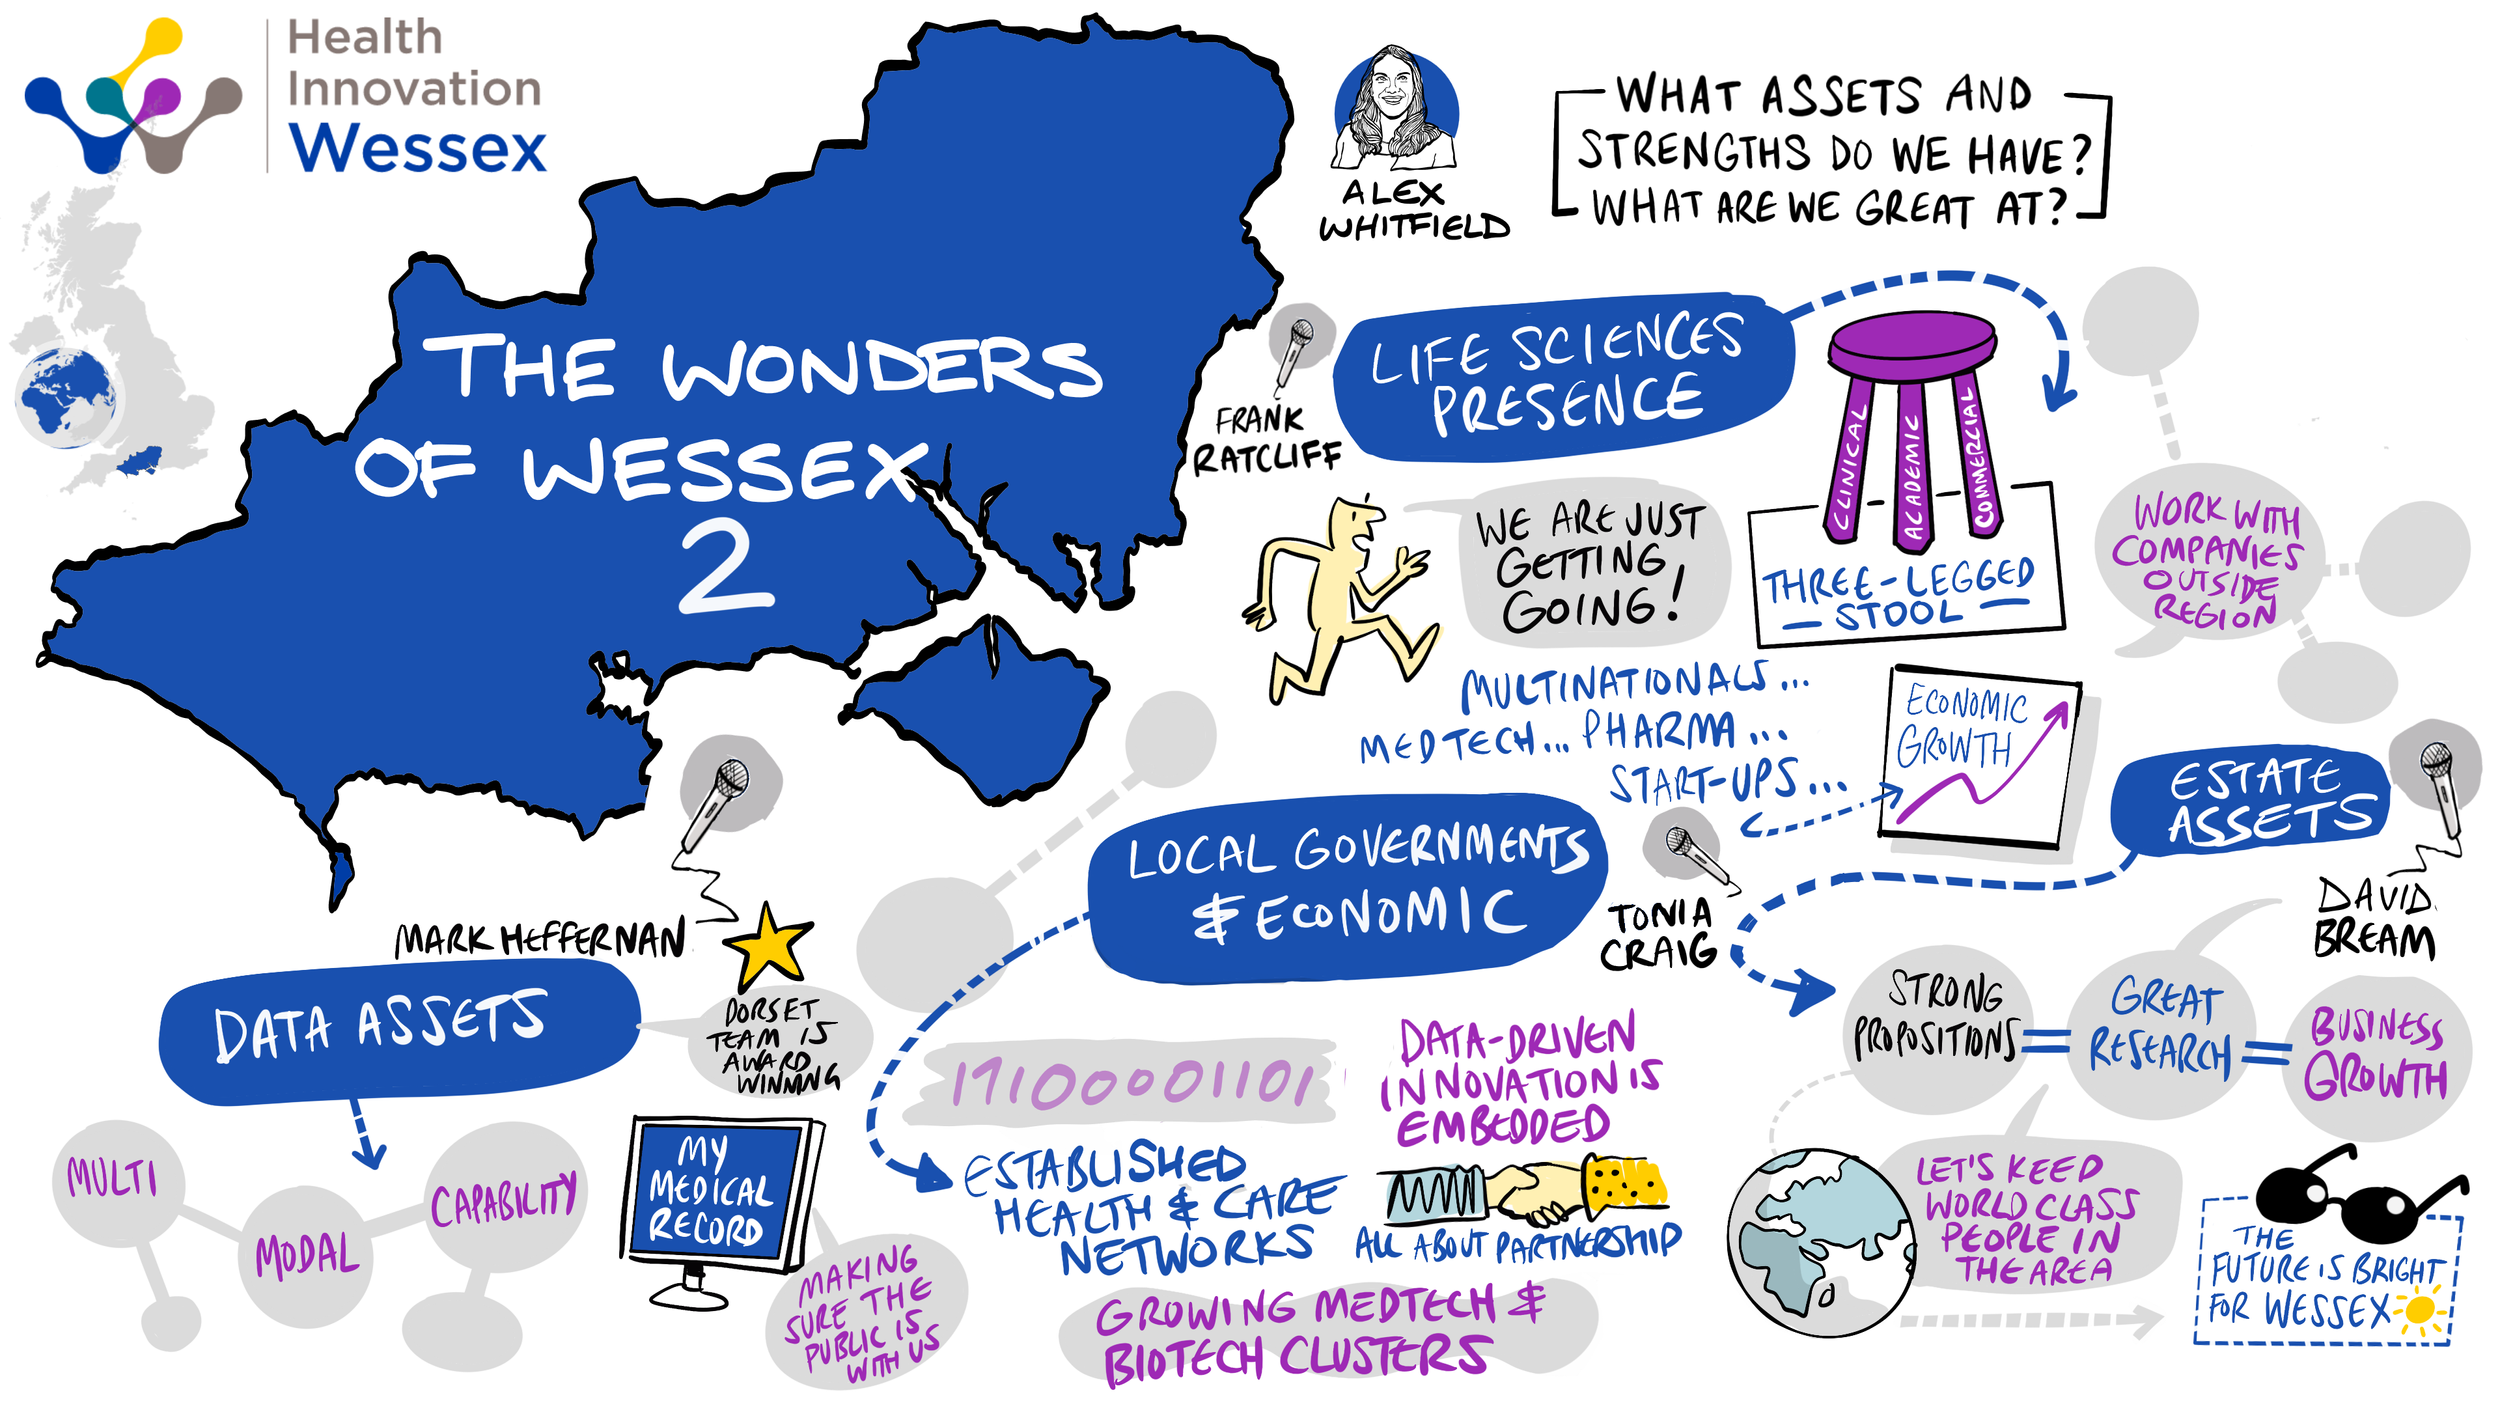 Health
Innovation
Wessex
THE WONDERS
OF WESSEX
2
ALEX
WHITFIELD
WHAT ASSETS AND
STRENGTHS DO WE HAVE?
WHAT ARE WE GREAT AT?
FRANK
RATCLIFF
LIFE SCIENCES
PRESENCE
CLINICAL
ACADEMIC
COMMERCIAL
THREE-LEGGED
STOOL
WE ARE JUST
GETTING
GOING!
WORK WITH
COMPANIES
OUTSIDE
REGION
MULTINATIONALS...
MEDTECH... PHARMA...
START-UPS...
ECONOMIC
GROWTH
LOCAL GOVERNMENTS
& ECONOMIC
TONIA
CRAIG
ESTATE
ASSETS
DAVID
BREAM
STRONG
PROPOSITIONS
=
GREAT
RESEARCH
=
BUSINESS
GROWTH
MARK HEFFERNAN
DATA ASSETS
DORSET
TEAM IS
AWARD
WINNING
MULTI
MODAL
CAPABILITY
MY
MEDICAL
RECORD
MAKING
SURE THE
PUBLIC IS
WITH US
11100001101
DATA-DRIVEN
INNOVATION IS
EMBEDDED
ESTABLISHED
HEALTH & CARE
NETWORKS
ALL ABOUT PARTNERSHIP
GROWING MEDTECH &
BIOTECH CLUSTERS
LET'S KEEP
WORLD CLASS
PEOPLE IN
THE AREA
THE
FUTURE IS BRIGHT
FOR WESSEX